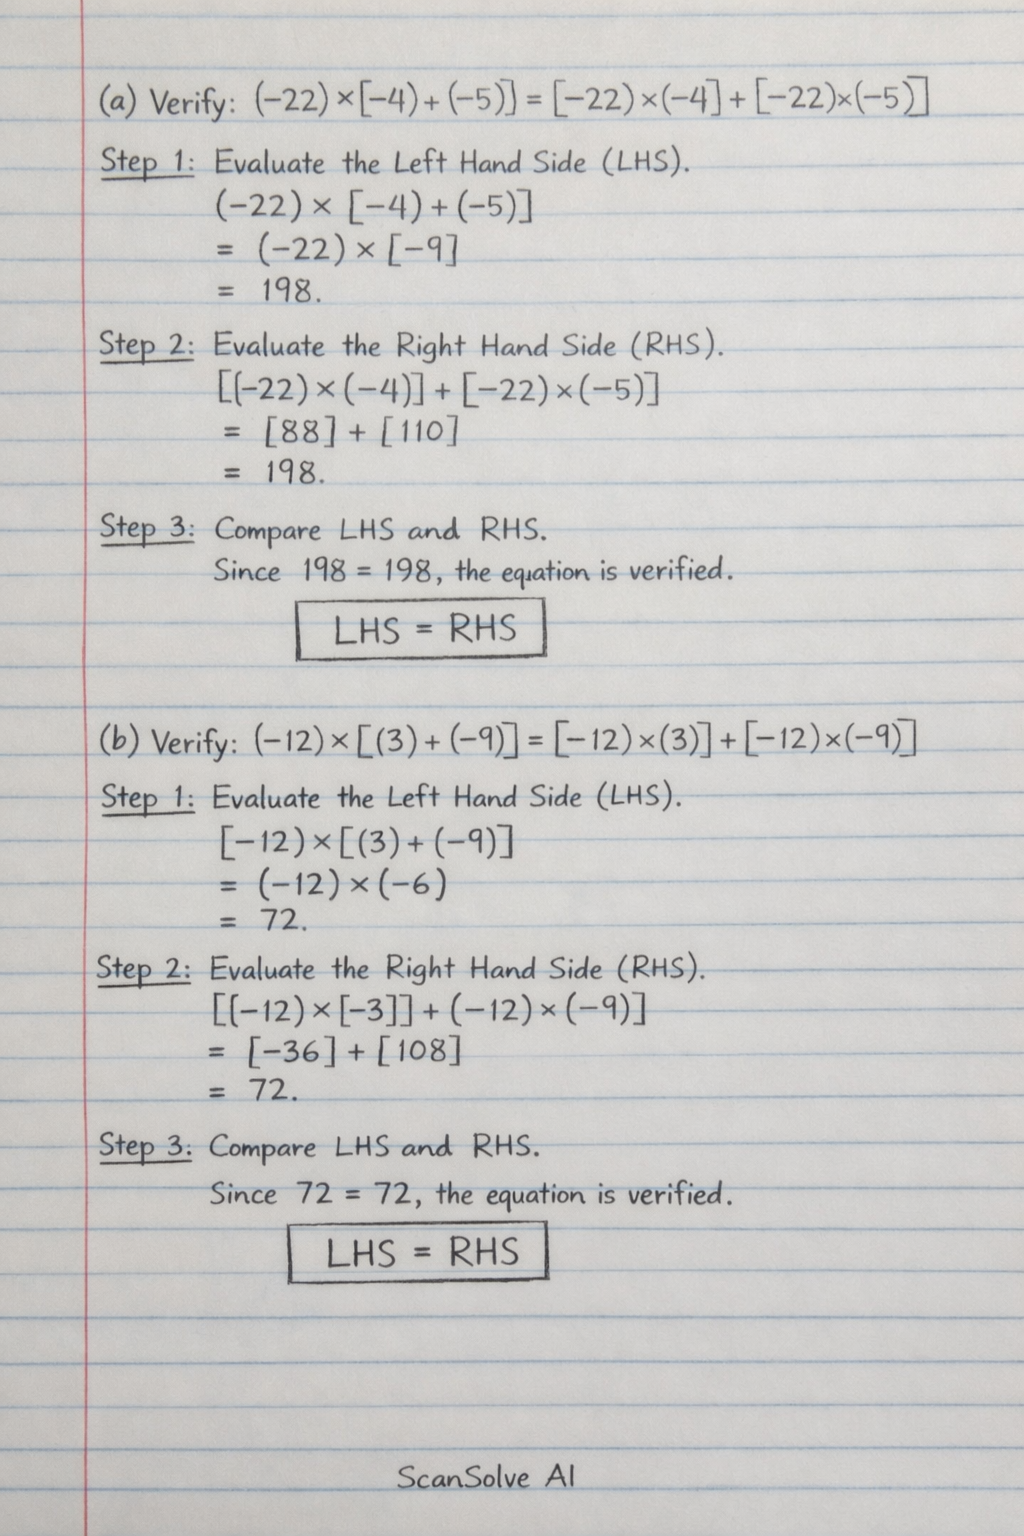 (a) Verify: (-22)×[-4)+(-5)] = [-22)×(-4]+[-22)×(-5)]
Step 1: Evaluate the Left Hand Side (LHS).
(-22) × [-4)+(-5)]
= (-22) × [-9]
= 198.
Step 2: Evaluate the Right Hand Side (RHS).
[(-22)×(-4)]+[-22)×(-5)]
= [88] + [110]
= 198.
Step 3: Compare LHS and RHS.
Since 198 = 198, the equation is verified.
LHS = RHS
(b) Verify: (-12)×[(3)+(-9)] = [-12)×(3)]+[-12)×(-9)]
Step 1: Evaluate the Left Hand Side (LHS).
[-12)×[(3)+(-9)]
= (-12)×(-6)
= 72.
Step 2: Evaluate the Right Hand Side (RHS).
[(-12)×[-3]]+(-12)×(-9)]
= [-36] + [108]
= 72.
Step 3: Compare LHS and RHS.
Since 72 = 72, the equation is verified.
LHS = RHS
ScanSolve AI